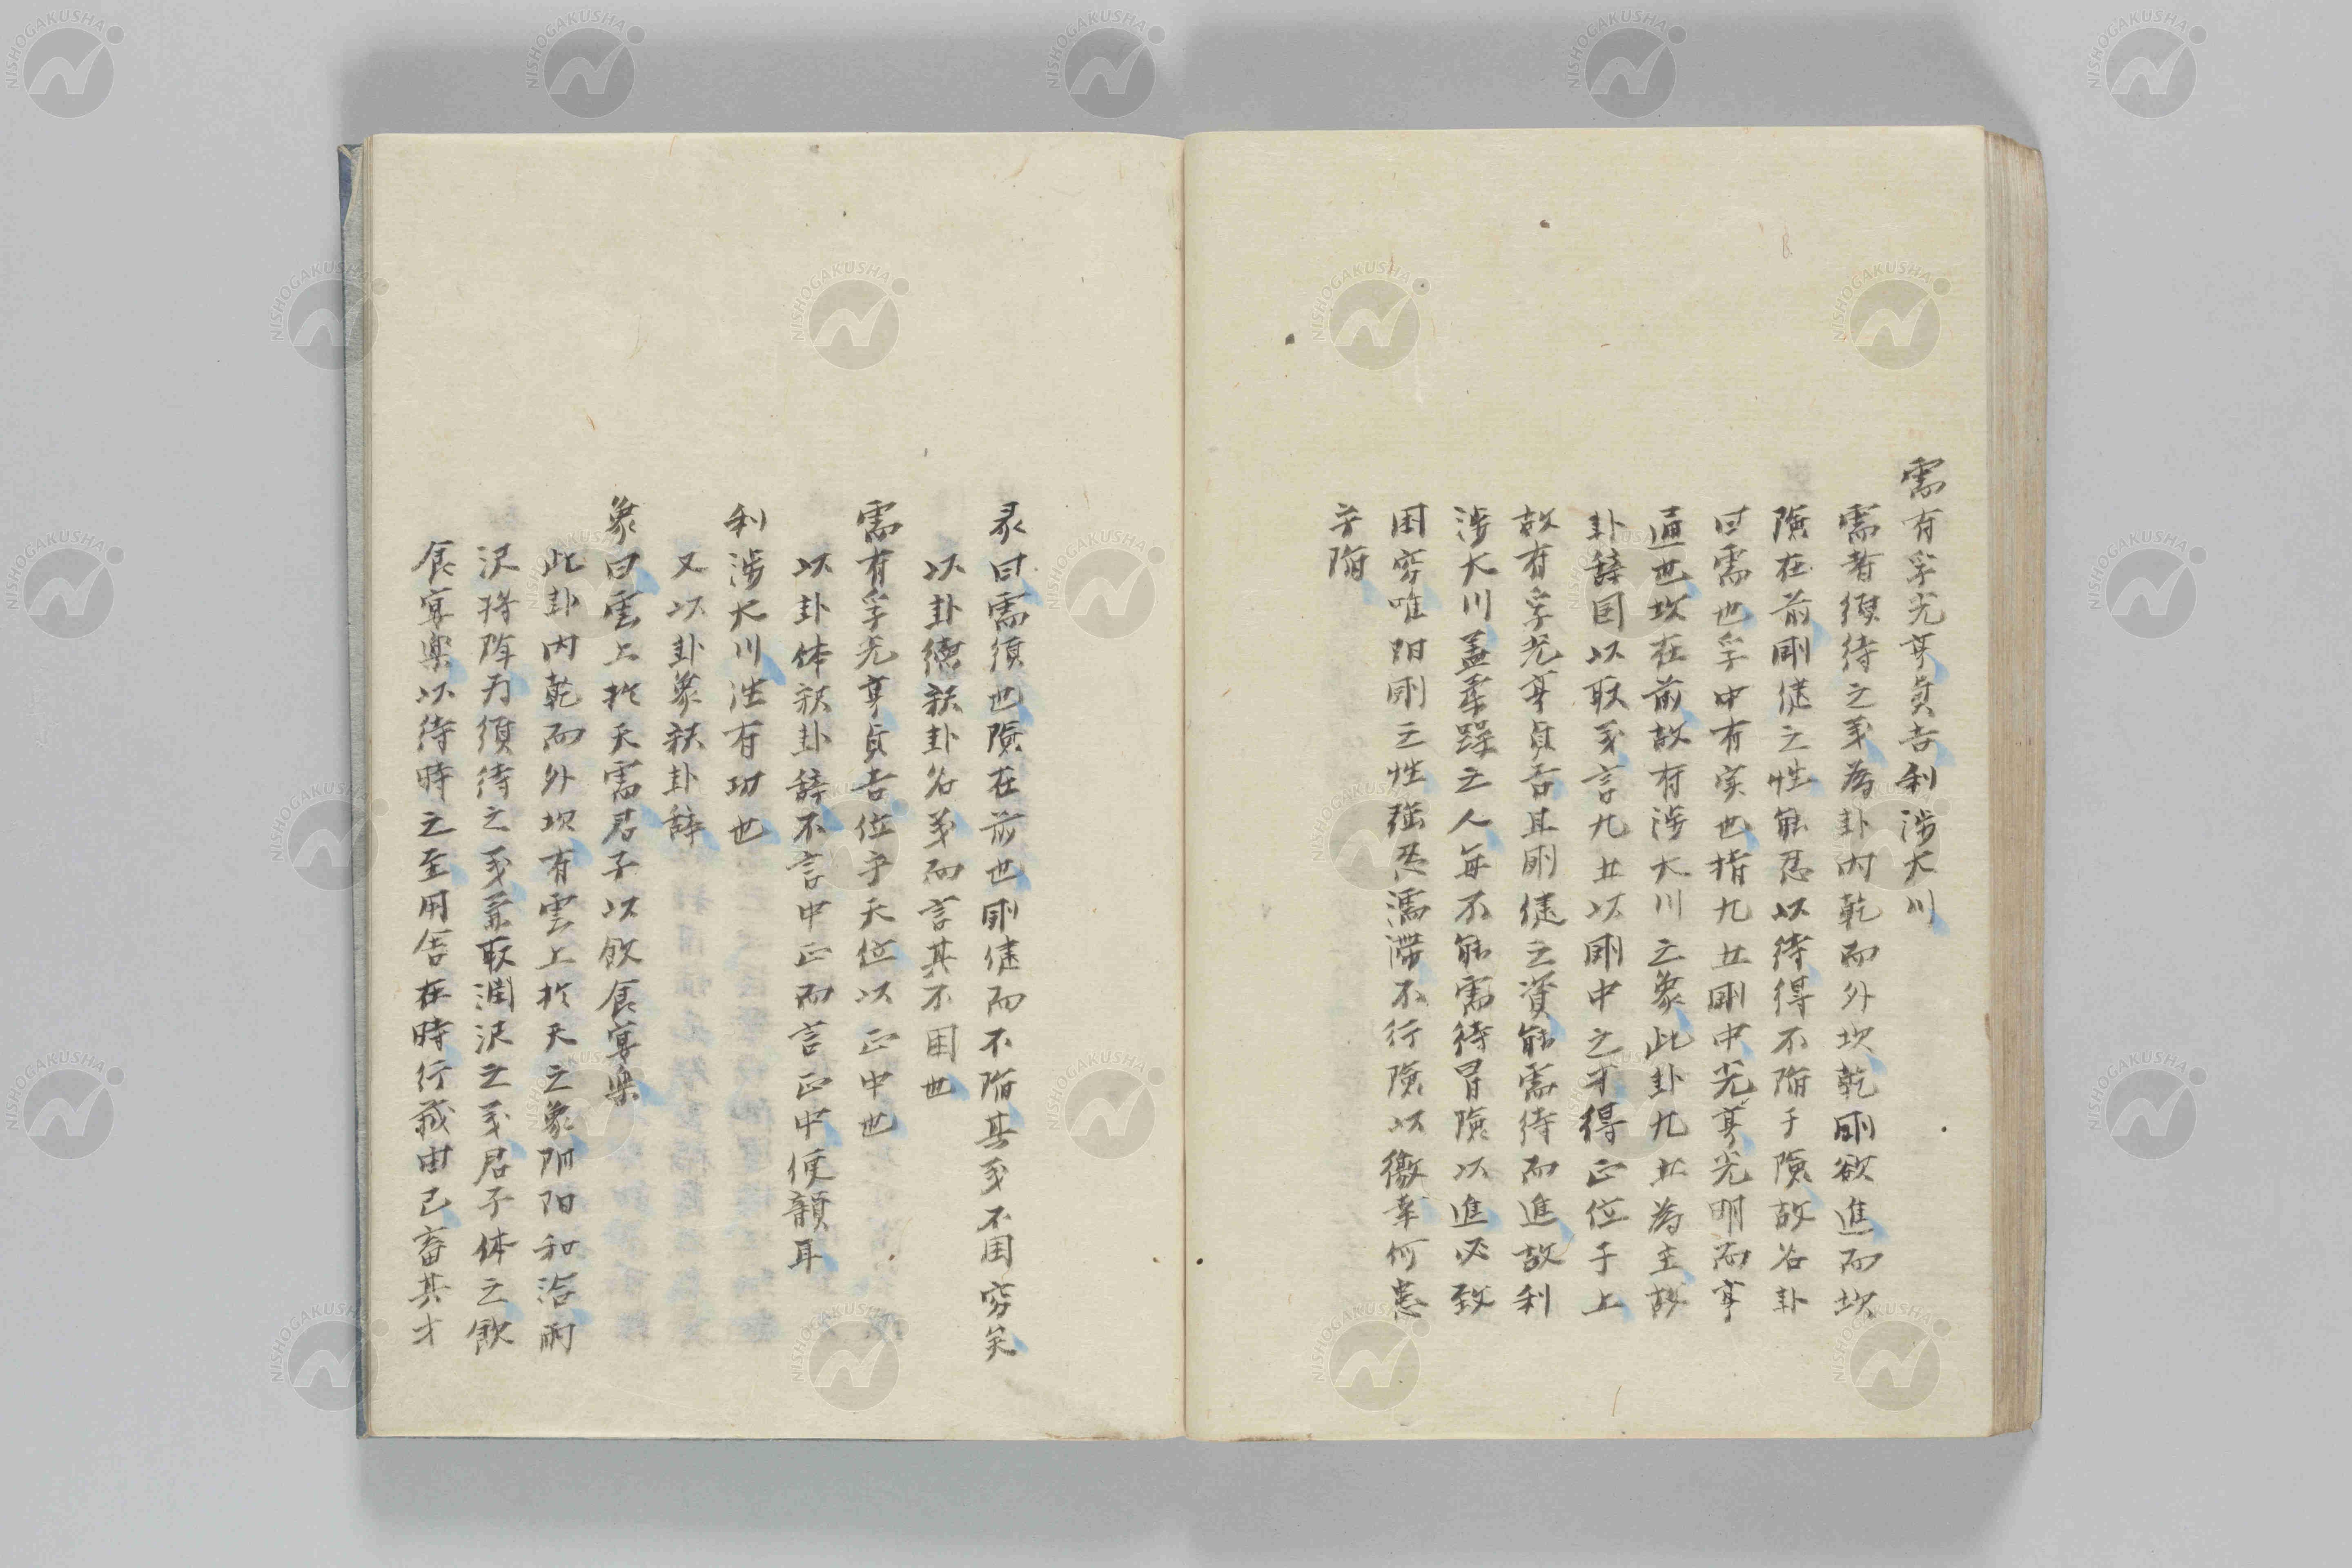 需有孚光亨貞吉利涉大川
需者須待之義為卦内乾而外坎乾剛欲進而坎
險在前剛健之性能忍以待得不陷于險故名卦
曰需也孚中有実也指九五剛中光亨光明而亨
通也坎在前故有涉大川之象此卦九五為主故
卦辞因以取義言九五以剛中之才得正位于上
故有孚光亨貞吉且剛健之資能需待而進故利
涉大川蓋牽躁之人毎不能需待冒險以進必致
困窮唯陽剛之性強忍濡滞不行險以徼幸何患
乎陷
彖曰需須也險在前也剛健而不陷其義不困窮矣
以卦德釈卦名義而言其不困也
需有孚光亨貞吉位乎天位以正中也
以卦体釈卦辞不言中正而言正中便韻耳
利涉大川往有功也
又以卦象釈卦辞
象曰雲上於天需君子以飲食宴楽
此卦内乾而外坎有雲上於天之象阴阳和洽耐
沢将降乃須待之義兼取潤沢之義君子体之飲
食宴楽以待時之至用舎在時行蔵由己畜其才
NISHOGAKUSHA